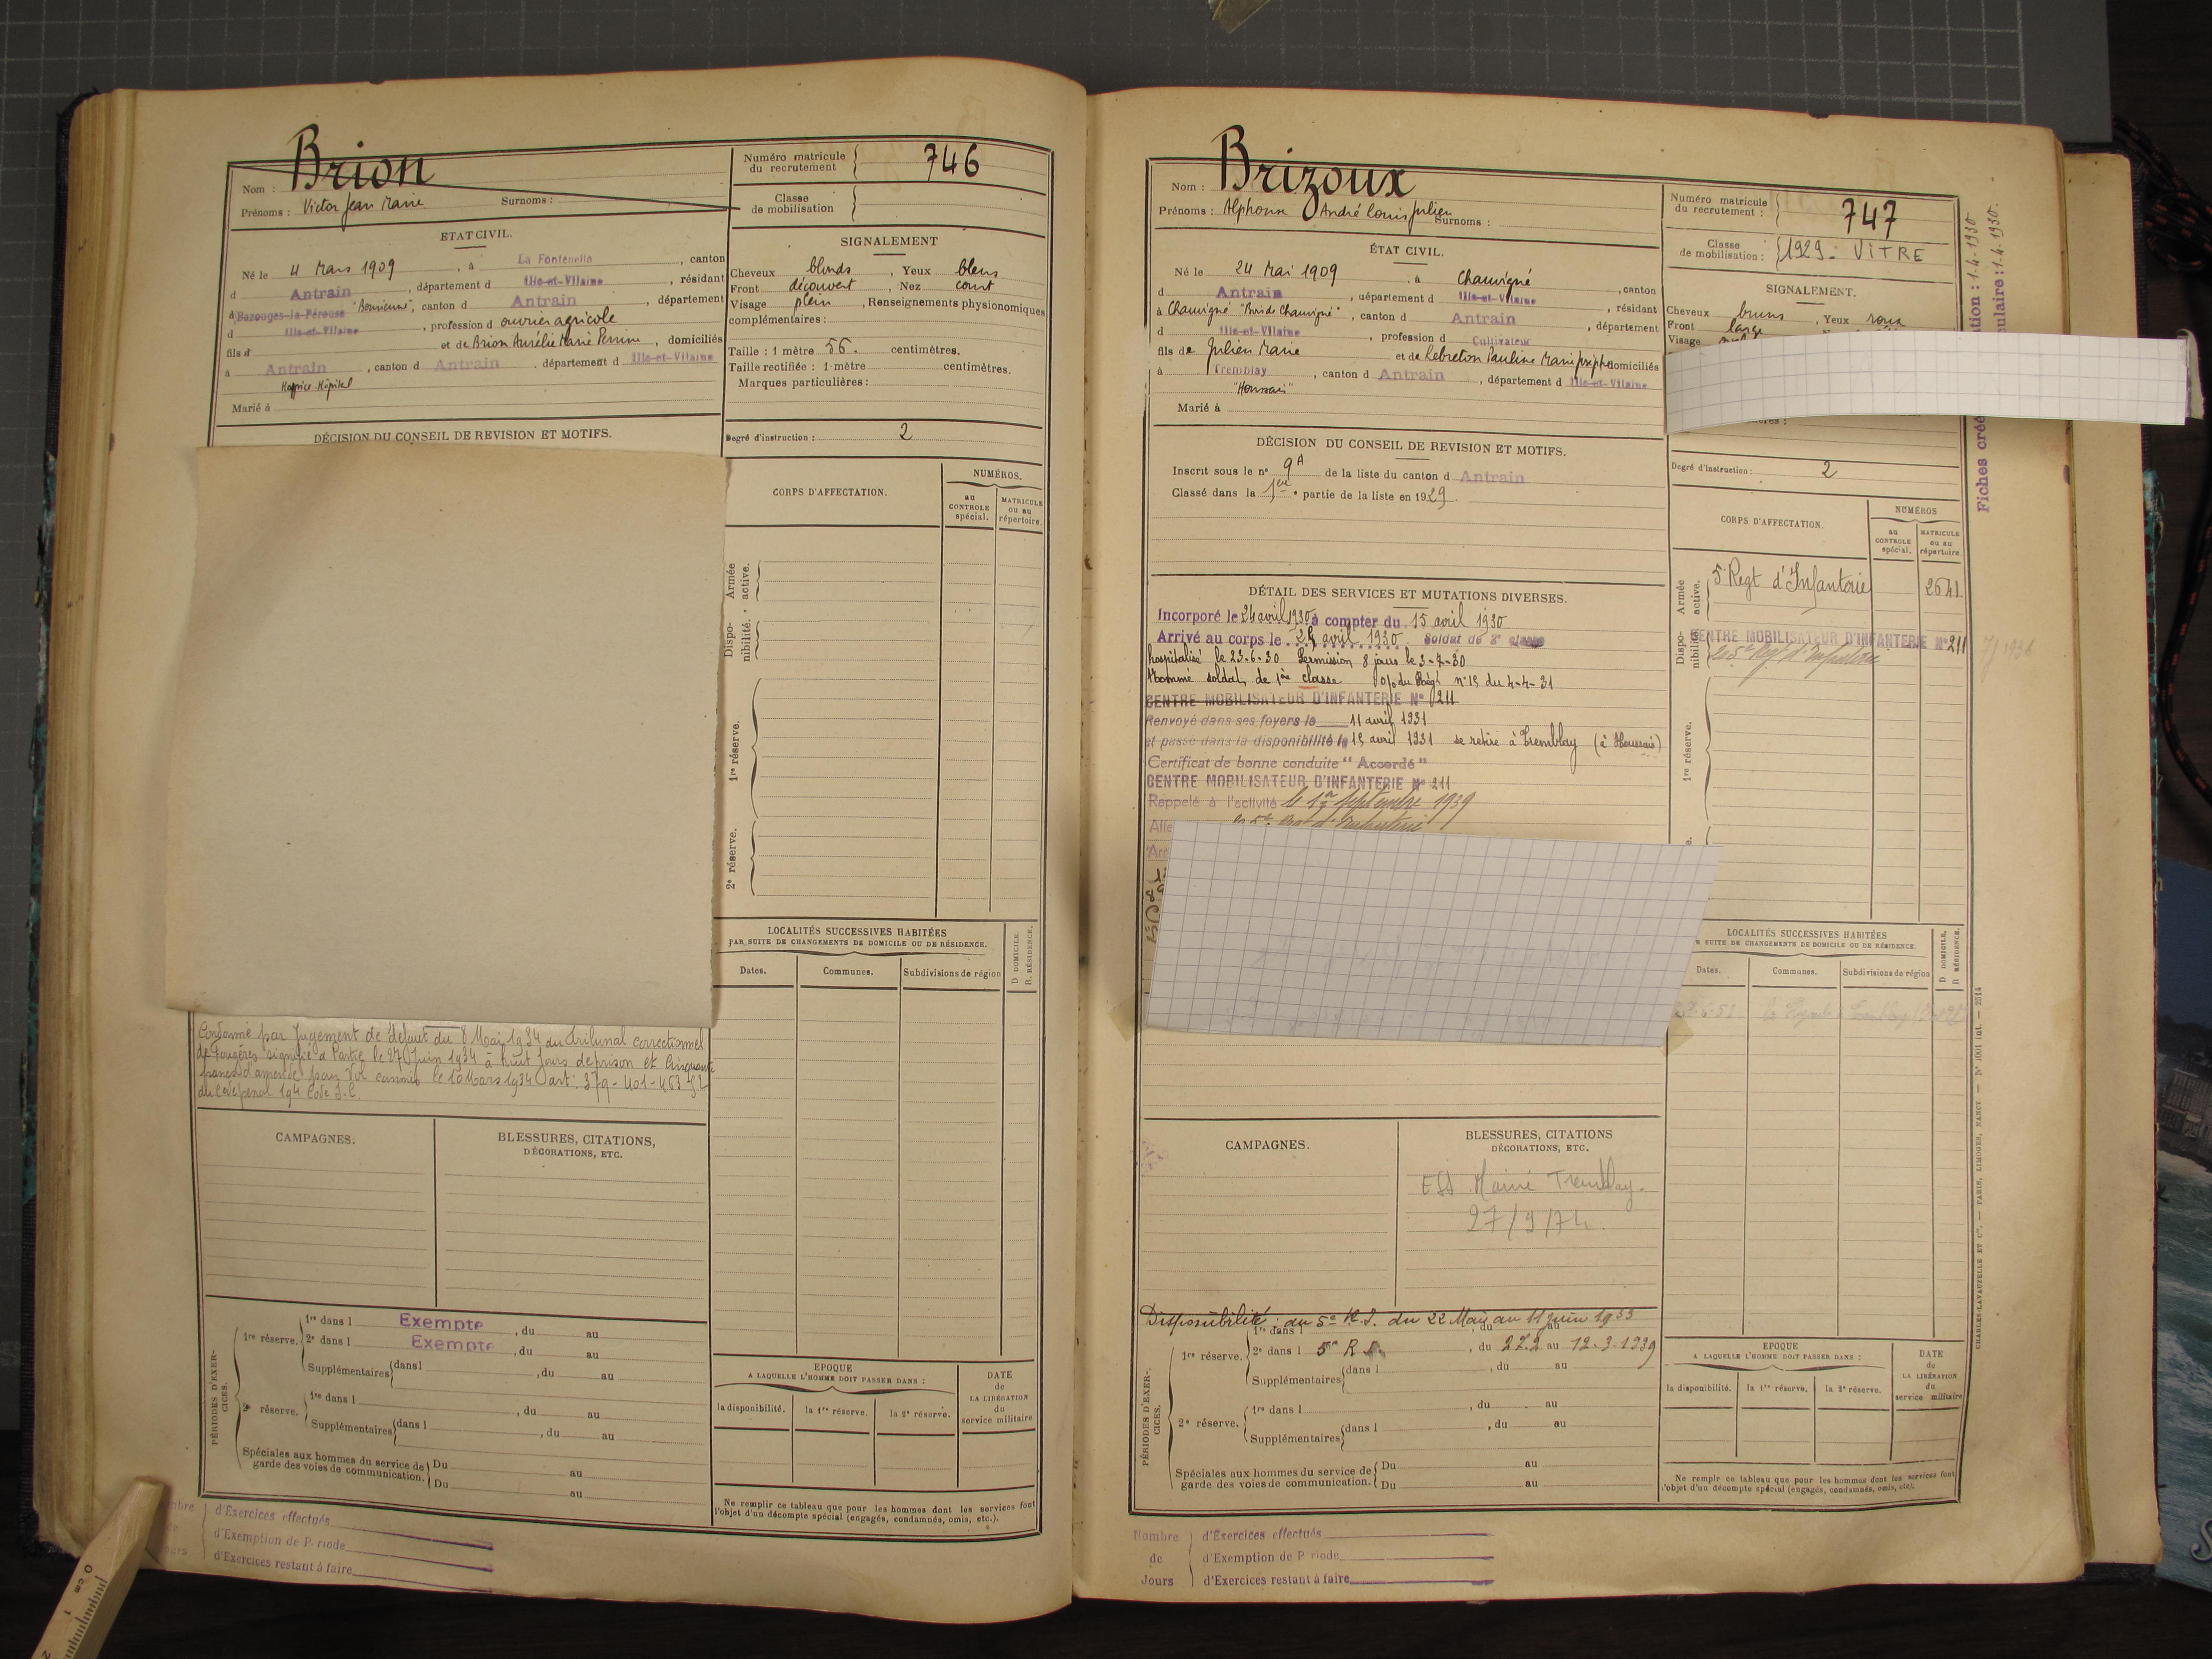 Brion
Nom :
Prénoms : Victor Jean Marie Surnoms :
Numéro matricule du recrutement 746
Classe de mobilisation
ETAT CIVIL.
Né le 4 Mars 1909, à La Fontenelle, canton
d Antrain, département d Ille-et-Vilaine, résidant
à Bazouges-la-Pérouse "Bonnienne", canton d Antrain, département
d Ille-et-Vilaine, profession d ouvrier agricole
fils d et de Brion Aurélie Marie Perrine, domiciliés
à Antrain, canton d Antrain, département d Ille-et-Vilaine
Hospice Hôpital
Marié à
SIGNALEMENT
Cheveux blonds, Yeux bleus
Front découvert, Nez court
Visage plein, Renseignements physionomiques
complémentaires :
Taille : 1 mètre 56. centimètres.
Taille rectifiée : 1 mètre centimètres.
Marques particulières :
Degré d'instruction : 2
DÉCISION DU CONSEIL DE REVISION ET MOTIFS.
CORPS D'AFFECTATION.
NUMÉROS.
au CONTROLE spécial.
MATRICULE ou au répertoire.
Armée active.
Disponibilité.
1re réserve.
2e réserve.
LOCALITÉS SUCCESSIVES HABITÉES
PAR SUITE DE CHANGEMENTS DE DOMICILE OU DE RÉSIDENCE.
Dates. Communes. Subdivisions de région
D DOMICILE.
R. RÉSIDENCE.
Condamné par jugement de défaut du 8 Mai 1934 du tribunal correctionnel
de Fougères signifié à Partie le 27 Juin 1934 à huit jours de prison et Cinquante
francs d'amende pour Vol commis le 10 Mars 1934 art. 379-401-463 §
du Code pénal 194 Code I.C.
CAMPAGNES.
BLESSURES, CITATIONS,
DÉCORATIONS, ETC.
PÉRIODES D'EXERCICES.
1re réserve.
1re dans l Exempte, du au
2e dans l Exempte, du au
Supplémentaires dans l , du au
2e réserve.
1re dans l , du au
Supplémentaires dans l , du au
Spéciales aux hommes du service de garde des voies de communication. Du au
Du au
EPOQUE
A LAQUELLE L'HOMME DOIT PASSER DANS :
la disponibilité. la 1re réserve. la 2e réserve.
DATE de LA LIBÉRATION du service militaire
Ne remplir ce tableau que pour les hommes dont les services font
l'objet d'un décompte spécial (engagés, condamnés, omis, etc.).
d'Exercices effectués
d'Exemption de P riode
d'Exercices restant à faire
0 cm 1
Brizoux
Nom :
Prénoms : Alphonse André Louis Julien
Surnoms :
Numéro matricule du recrutement : 747
Classe de mobilisation : 1929 - VITRE
ÉTAT CIVIL.
Né le 24 Mai 1909, à Chauvigné, canton
d Antrain, département d Ille-et-Vilaine, résidant
à Chauvigné "Bas de Chauvigné", canton d Antrain, département
d Ille-et-Vilaine, profession d Cultivateur
fils de Julien Marie et de Lebreton Pauline Marie Josèphe domiciliés
à Tremblay, canton d Antrain, département d Ille-et-Vilaine
"Houssais"
Marié à
SIGNALEMENT.
Cheveux bruns, Yeux roux
Front large
Visage
Degré d'instruction : 2
DÉCISION DU CONSEIL DE REVISION ET MOTIFS.
Inscrit sous le n° 9A de la liste du canton d Antrain
Classé dans la 1ère partie de la liste en 1929.
DÉTAIL DES SERVICES ET MUTATIONS DIVERSES.
Incorporé le 24 avril 1930 à compter du 15 avril 1930
Arrivé au corps le 24 avril 1930 Soldat de 2e classe
hospitalisé le 23-6-30 Permission 8 jours le 3-7-30
Nommé soldat de 1ère classe O/ du Régt n° 15 du 4-4-31
CENTRE MOBILISATEUR D'INFANTERIE N° 211
Renvoyé dans ses foyers le 11 avril 1931
et passé dans la disponibilité le 15 avril 1931 se retire à Tremblay (à Houssais)
Certificat de bonne conduite "Accordé"
CENTRE MOBILISATEUR D'INFANTERIE N° 211
Rappelé à l'activité le 1er Septembre 1939
CORPS D'AFFECTATION.
NUMÉROS
au CONTROLE spécial.
MATRICULE ou au répertoire
Armée active.
5e Regt d'Infanterie 2641
Disponibilité.
CENTRE MOBILISATEUR D'INFANTERIE N° 211
1re réserve.
LOCALITÉS SUCCESSIVES HABITÉES
R SUITE DE CHANGEMENTS DE DOMICILE OU DE RÉSIDENCE.
Dates. Communes. Subdivisions de région
D DOMICILE.
R RÉSIDENCE.
CAMPAGNES.
BLESSURES, CITATIONS
DÉCORATIONS, ETC.
Mairie Tremblay.
Disponibilité : au 5e R.I. du 22 Mai au 11 juin 1933
PÉRIODES D'EXERCICES.
1re réserve.
1re dans l , du au
2e dans l 5e R.I., du 27.2 au 12-3-1939
Supplémentaires dans l , du au
2e réserve.
1re dans l , du au
Supplémentaires dans l , du au
Spéciales aux hommes du service de garde des voies de communication. Du au
Du au
EPOQUE
A LAQUELLE L'HOMME DOIT PASSER DANS :
la disponibilité. la 1re réserve. la 2e réserve.
DATE de LA LIBÉRATION du service militaire
Ne remplir ce tableau que pour les hommes dont les services font
l'objet d'un décompte spécial (engagés, condamnés, omis, etc.).
Nombre de Jours
d'Exercices effectués
d'Exemption de P riode
d'Exercices restant à faire
Fiches créé
tion : 1-4-1930
culaire : 1-4-1930.
CHARLES-LAVAUZELLE ET Cie. — PARIS, LIMOGES, NANCY. — N° 1001 Int. — 2514